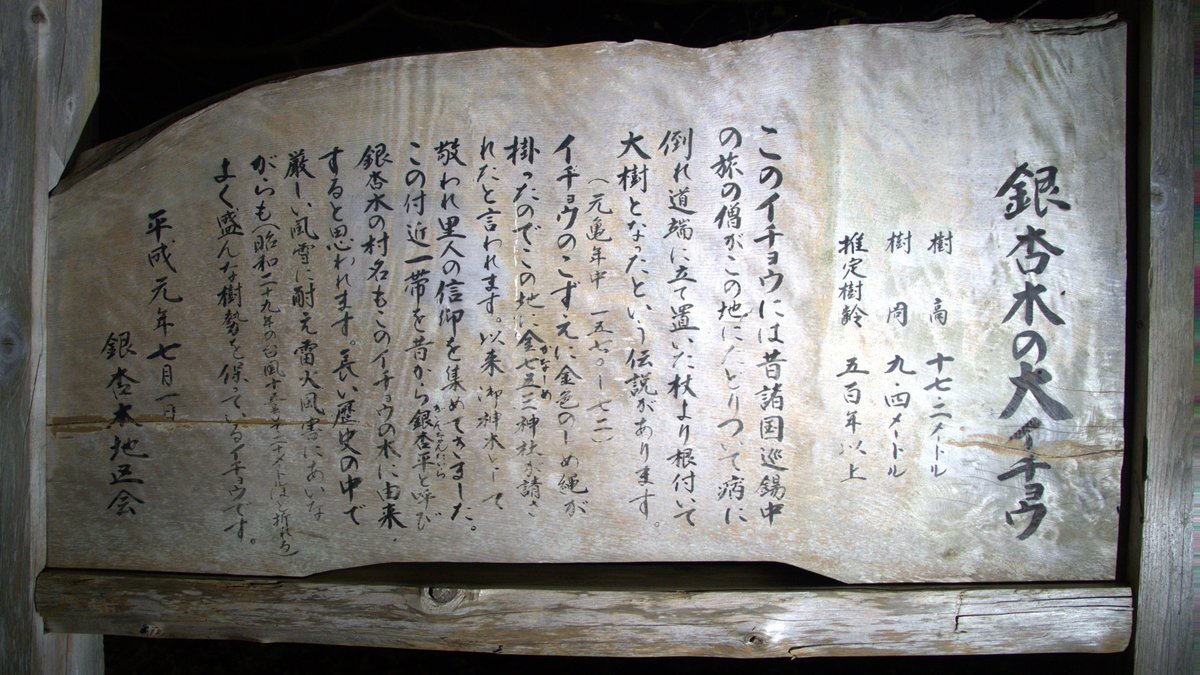 銀杏木の大イチョウ
樹高 十七・二メートル
樹周 九・四メートル
推定樹齢 五百年以上
このイチョウには昔諸国巡錫中
の旅の僧がこの地にたどりついて病に
倒れ道端に立て置いた杖より根付いて
大樹となったという伝説があります。
(元亀年中 一五七〇〜七二)
イチョウのこずえに金色のしめ縄が
掛ったのでこの地に金七五三神社が請さ
れたと言われます。以来御神木として
敬われ里人の信仰を集めてきました。
この付近一帯を昔から銀杏平と呼び
銀杏木の村名もこのイチョウの木に由来
すると思われます。長い歴史の中で
厳しい風雪に耐え雷火風害にあいな
がらも(昭和二十九年の台風十五号で二十メートルほど折れる)
よく盛んな樹勢を保っているイチョウです。
平成元年七月一日
銀杏木地区会